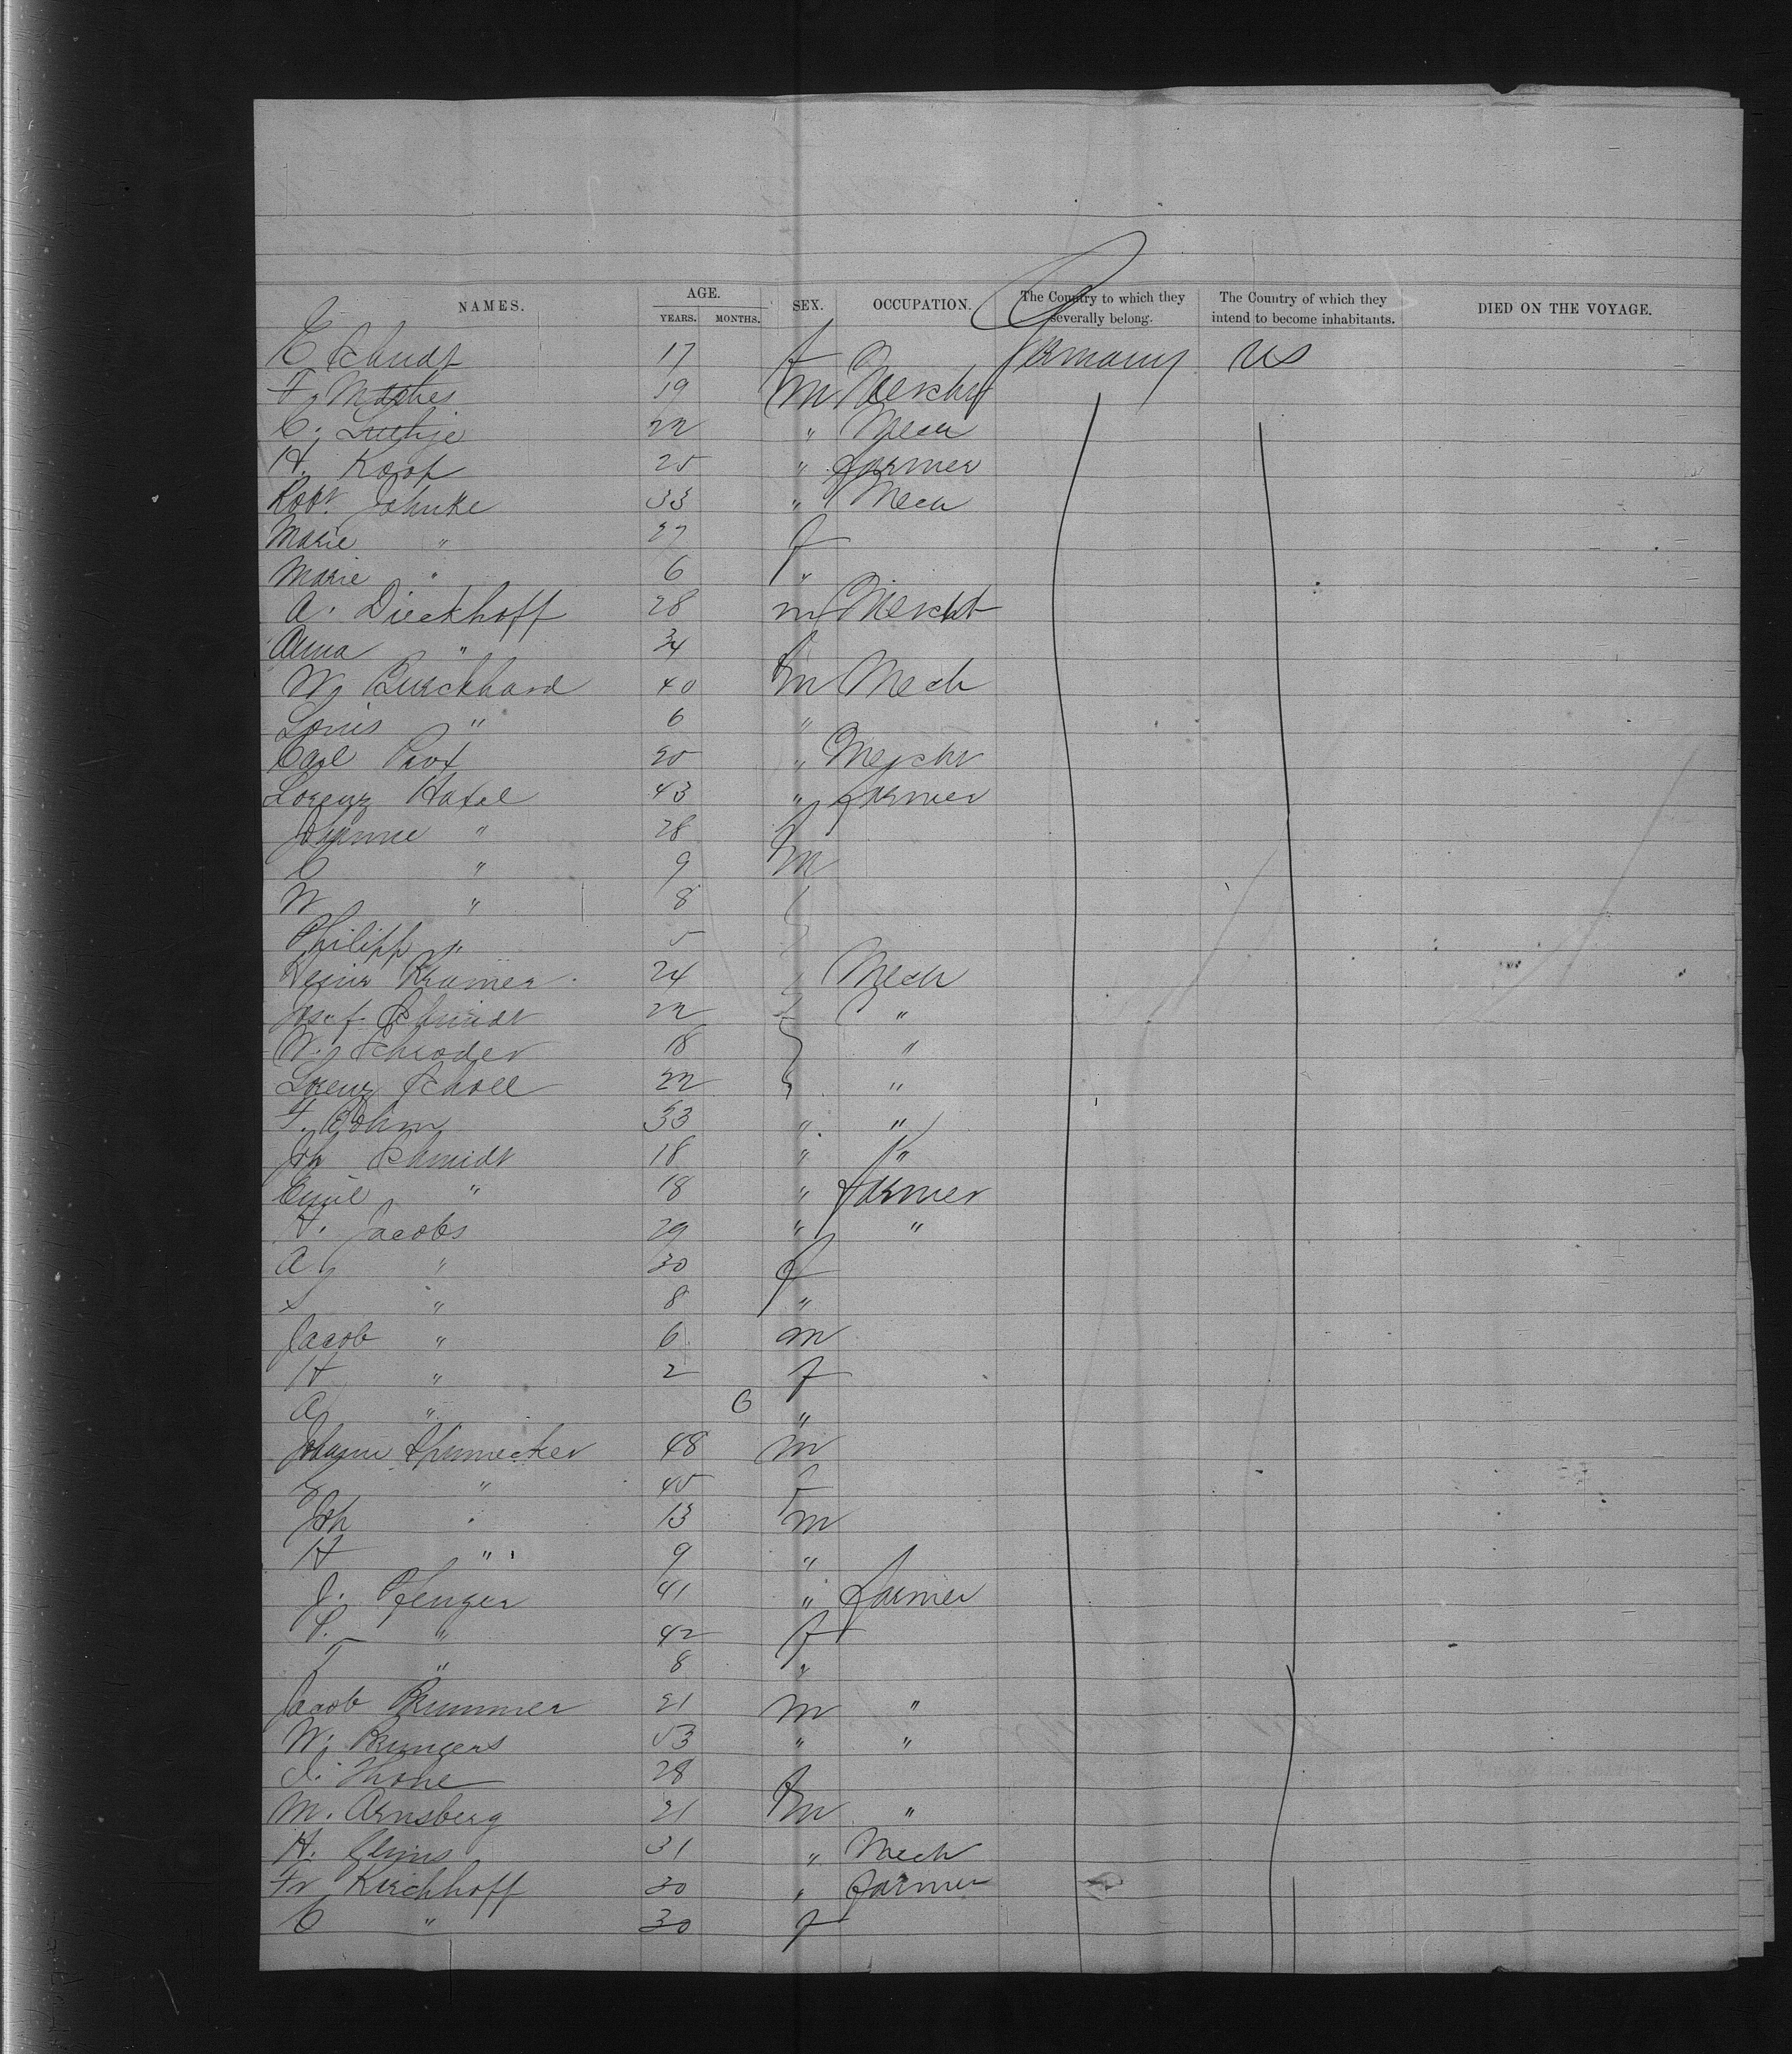 NAMES. AGE. SEX. OCCUPATION. The Country to which they severally belong. The Country of which they intend to become inhabitants. DIED ON THE VOYAGE.
YEARS. MONTHS.
E Schudt 17 f Germany US
F. Mathes 19 m Mercht
C. Luthje 22 " Mech
H. Koop 25 " farmer
Robt. Johnke 33 " Mech
Marie " 27 f
Marie " 6 "
A. Dieckhoff 28 m Mercht
Anna " 34 f
W. Burckhard 40 m Mech
Louis " 6 "
Carl 20 " Mercht
Lorenz Hasel 43 " farmer
Johanne " 28 f
C " 9 m
W " 8
Philipp " 5
Heinr Kramer 24 Mech
Josef Schmidt 22 "
W. Schroder 18 "
Lorenz Scholl 22 "
F. Bohm 33 " "
Joh Schmidt 18 " "
Emil " 18 " farmer
H. Jacobs 29 " "
A " 30 f
" 8 "
Jacob " 6 m
H " 2 f
A " 6 "
Johann 48 m
" 45 f
Joh " 13 m
H " 9 "
J. Pfenger 41 " farmer
P. " 42 f
T " 8 "
Jacob Brummer 21 m "
W. Bungers 53 " "
J. Thone 28 f
M. Arnsberg 21 m "
H. Clims 31 " Mech
Fr Kirchhoff 30 " farmer
C " 30 f